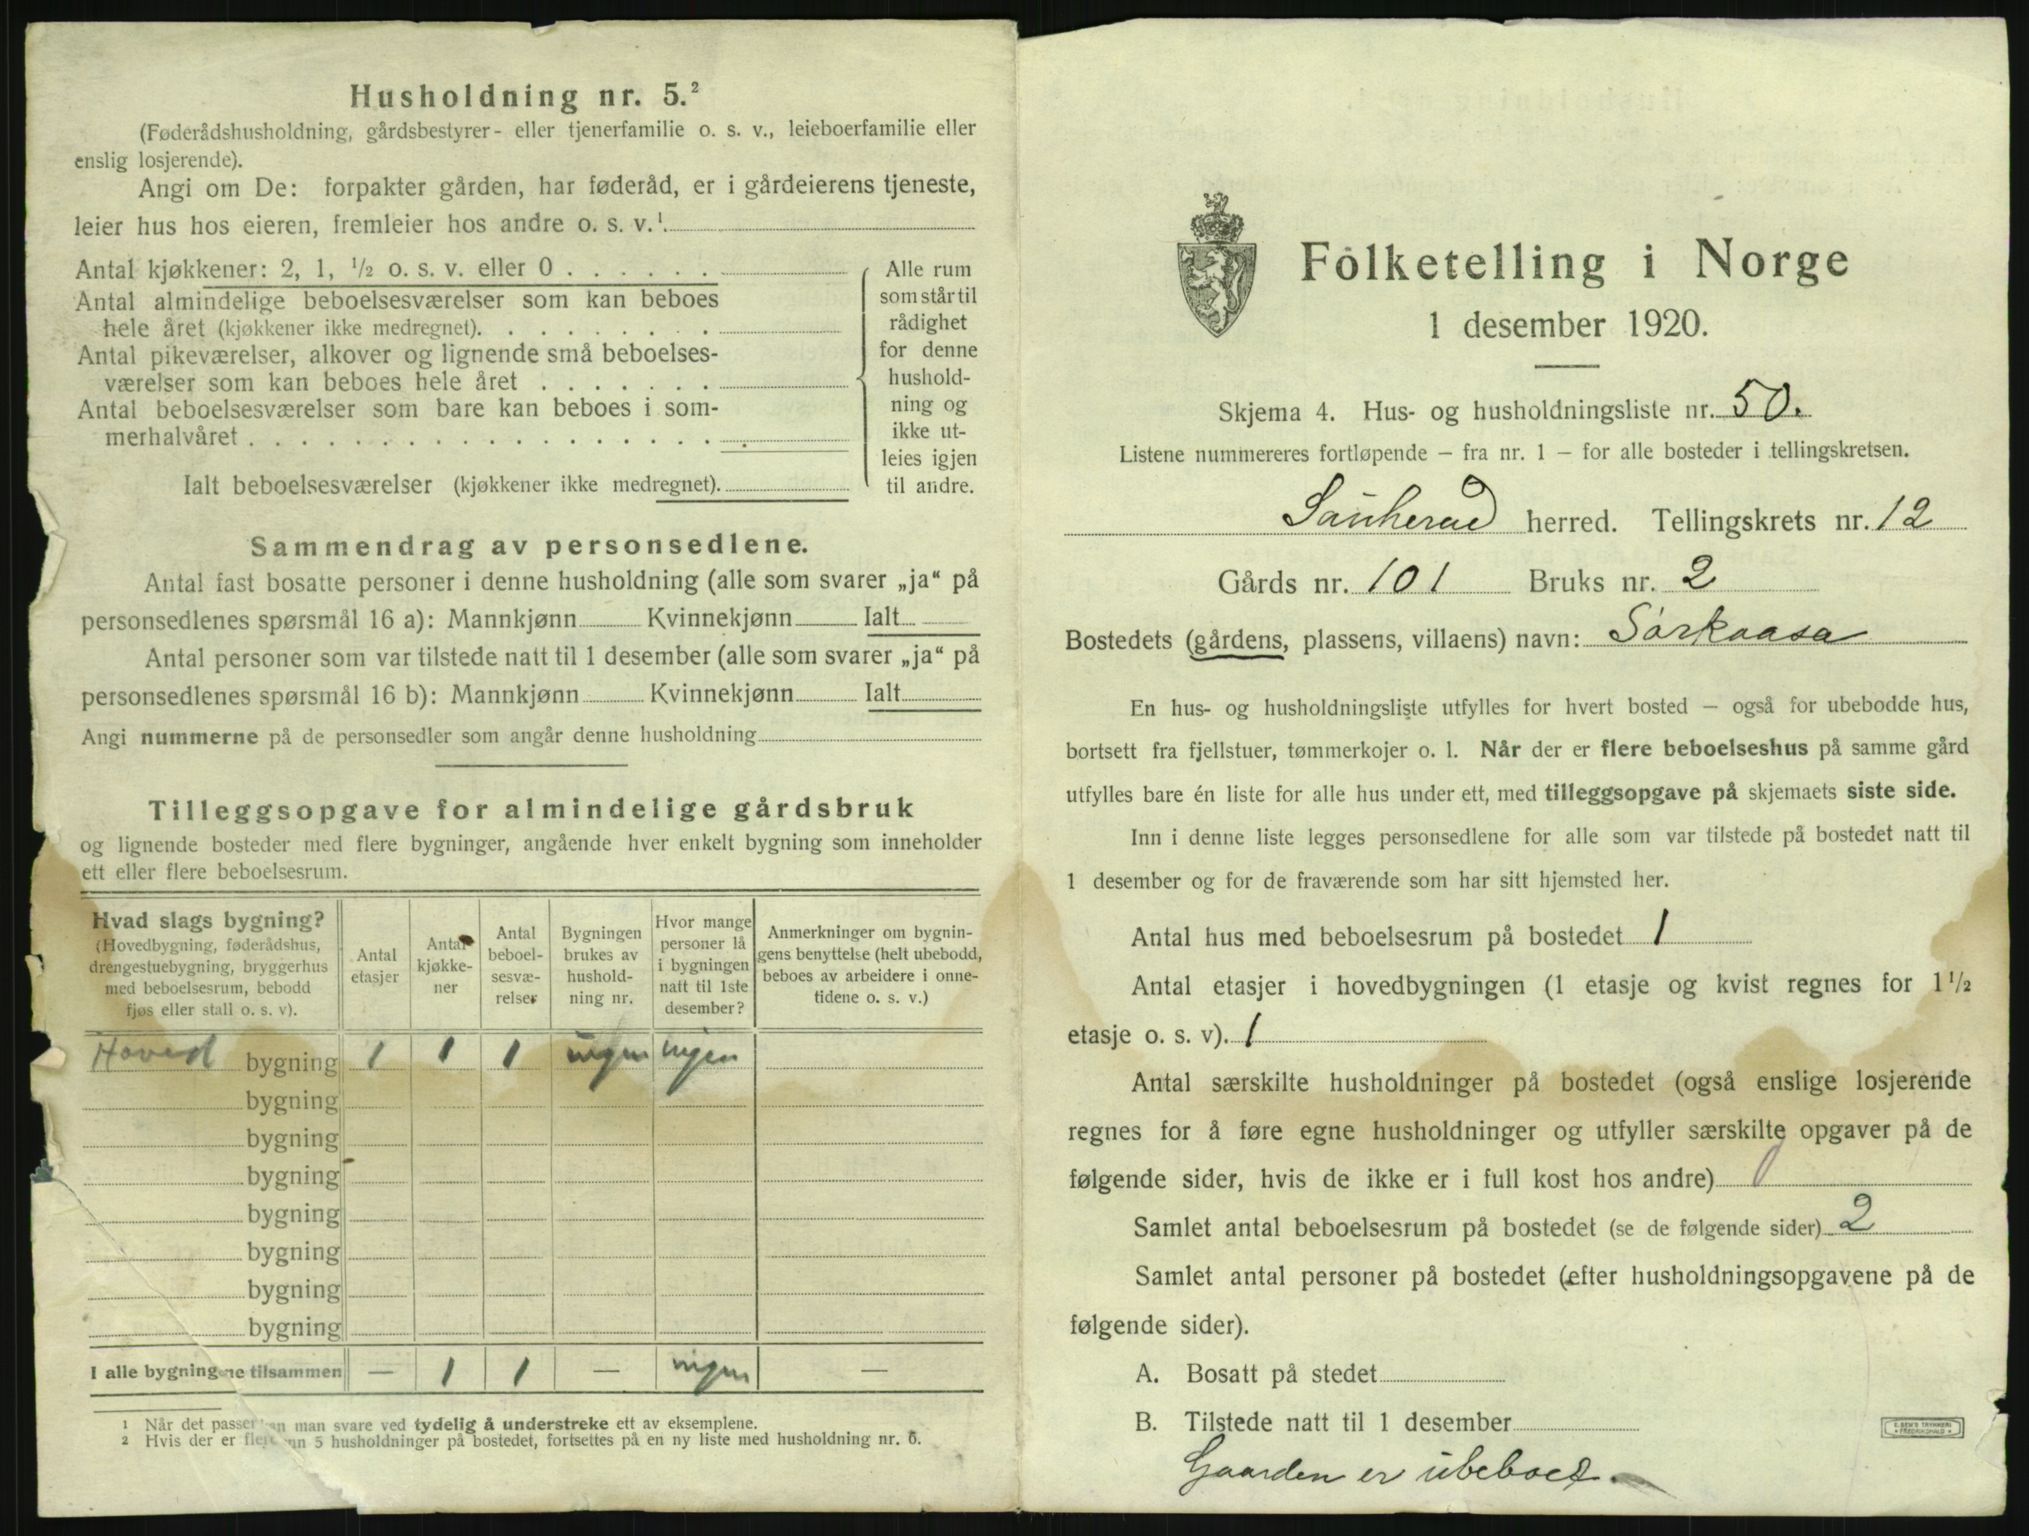 Husholdning nr. 5.²
(Føderådshusholdning, gårdsbestyrer- eller tjenerfamilie o. s. v., leieboerfamilie eller
enslig losjerende).
Angi om De: forpakter gården, har føderåd, er i gårdeierens tjeneste,
leier hus hos eieren, fremleier hos andre o. s. v.¹.
Antal kjøkkener: 2, 1, ½ o. s. v. eller 0 . . . . . .
Antal almindelige beboelsesværelser som kan beboes
hele året (kjøkkener ikke medregnet). . . . . . . . .
Antal pikeværelser, alkover og lignende små beboelses-
værelser som kan beboes hele året . . . . . . .
Antal beboelsesværelser som bare kan beboes i som-
merhalvåret . . . . . . . . . . . . . . . . . .
Ialt beboelsesværelser (kjøkkener ikke medregnet).
Alle rum
som står til
rådighet
for denne
hushold-
ning og
ikke ut-
leies igjen
til andre.
Sammendrag av personsedlene.
Antal fast bosatte personer i denne husholdning (alle som svarer „ja“ på
personsedlenes spørsmål 16 a): Mannkjønn Kvinnekjønn Ialt
Antal personer som var tilstede natt til 1 desember (alle som svarer „ja“ på
personsedlenes spørsmål 16 b): Mannkjønn Kvinnekjønn Ialt
Angi nummerne på de personsedler som angår denne husholdning
Tilleggsopgave for almindelige gårdsbruk
og lignende bosteder med flere bygninger, angående hver enkelt bygning som inneholder
ett eller flere beboelsesrum.
Hvad slags bygning?
(Hovedbygning, føderådshus,
drengestuebygning, bryggerhus
med beboelsesrum, bebodd
fjøs eller stall o. s. v).
Antal
etasjer
Antal
kjøkke-
ner
Antal
beboel-
sesvæ-
relser
Bygningen
brukes av
hushold-
ning nr.
Hvor mange
personer lå
i bygningen
natt til 1ste
desember?
Anmerkninger om bygnin-
gens benyttelse (helt ubebodd,
beboes av arbeidere i onne-
tidene o. s. v.)
Hoved bygning 1 1 1 ingen ingen
bygning
bygning
bygning
bygning
bygning
bygning
bygning
I alle bygningene tilsammen — 1 1 — ingen —
¹ Når det passer kan man svare ved tydelig å understreke ett av eksemplene.
² Hvis der er flere enn 5 husholdninger på bostedet, fortsettes på en ny liste med husholdning nr. 6.
Folketelling i Norge
1 desember 1920.
Skjema 4. Hus- og husholdningsliste nr. 50.
Listene nummereres fortløpende — fra nr. 1 — for alle bosteder i tellingskretsen.
Sauherad herred. Tellingskrets nr. 12
Gårds nr. 101 Bruks nr. 2
Bostedets (gårdens, plassens, villaens) navn: Sørkaasa
En hus- og husholdningsliste utfylles for hvert bosted — også for ubebodde hus,
bortsett fra fjellstuer, tømmerkojer o. l. Når der er flere beboelseshus på samme gård
utfylles bare én liste for alle hus under ett, med tilleggsopgave på skjemaets siste side.
Inn i denne liste legges personsedlene for alle som var tilstede på bostedet natt til
1 desember og for de fraværende som har sitt hjemsted her.
Antal hus med beboelsesrum på bostedet 1
Antal etasjer i hovedbygningen (1 etasje og kvist regnes for 1½
etasje o. s. v). 1
Antal særskilte husholdninger på bostedet (også enslige losjerende
regnes for å føre egne husholdninger og utfyller særskilte opgaver på de
følgende sider, hvis de ikke er i full kost hos andre) 0
Samlet antal beboelsesrum på bostedet (se de følgende sider) 2
Samlet antal personer på bostedet (efter husholdningsopgavene på de
følgende sider).
A. Bosatt på stedet
B. Tilstede natt til 1 desember
Gaarden er ubeboet.
E. SEM'S TRYKKERI
FREDRIKSHALD